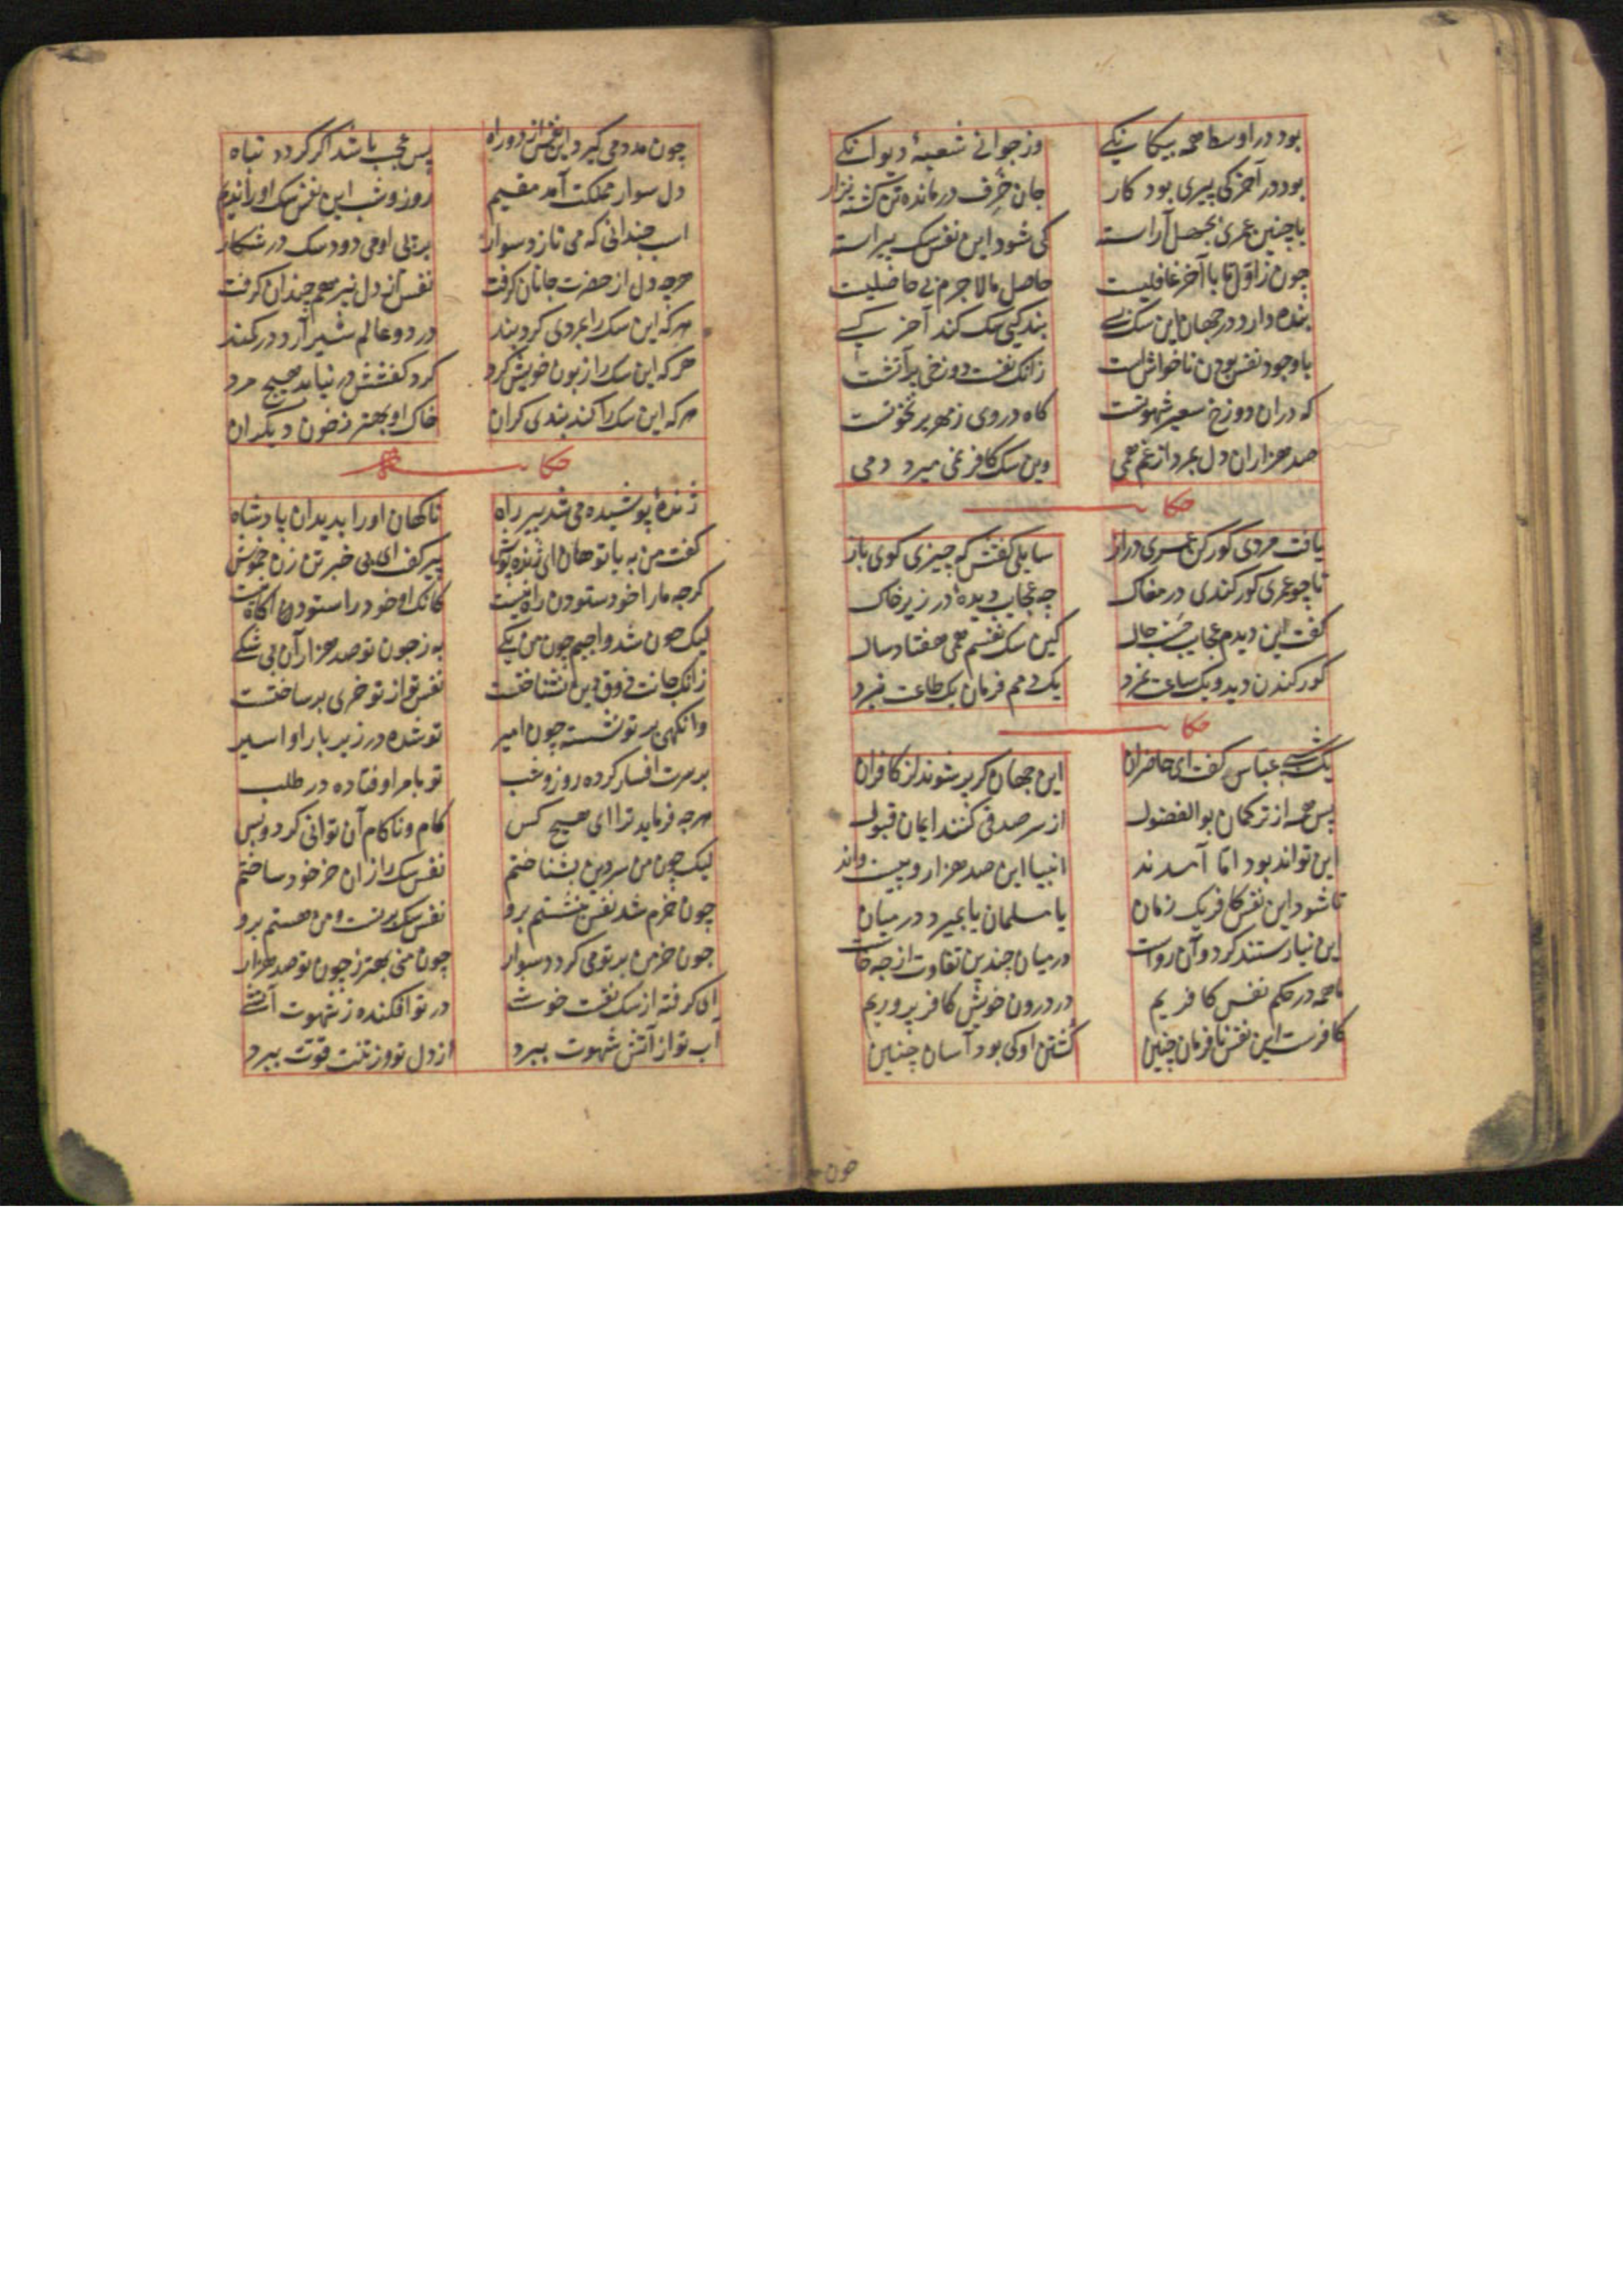 بود در اوسط همه بیکانیکی وز جوانی شعبهٔ دیوانکی
بود در آخر که پیری بود کار جان خرف درمانده تن کشته نزار
با چنین عمری بجهل آراسته کی شود این نفس سک پیراسته
چون ز اول تا باآخر غافلیست حاصل ما لاجرم بی حاصلیست
بنده دارد در جهان این سک بسی بندکی سک کند آخر کسی
با وجود نفس بودن ناخوشست زانک نفست دوزخی پر آتشست
که دران دوزخ سعیر شهوتست کاه در وی زمهریر نخوتست
صد هزاران دل بمرد از غم همی وین سک کافر نمی میرد دمی
حکایت
یافت مردی کورکن عمری دراز سایلی کفتش که چیزی کوی باز
تا چو عمری کور کندی در مغاک چه عجایب دیدهٔ در زیر خاک
کفت این دیدم عجایب حسب حال کین سک نفسم همی هفتاد سال
کور کندن دید و یک ساعت نمرد یک دمم فرمان یک طاعت نبرد
حکایت
یک شبی عباس کفت ای حاضران این جهان کر پر شوند از کافران
پس همه از ترکمان بوالفضول از سر صدقی کنند ایمان قبول
این تواند بود اما آمدند انبیا این صد هزار و بیست واند
تا شود این نفس کافر یک زمان یا مسلمان یا بمیرد در میان
این نیارستند کرد و آن رواست در میان چندین تفاوت از چه خاست
ما همه در حکم نفس کافریم در درون خویش کافر پروریم
کافرست این نفس نافرمان چنین کشتن او کی بود آسان چنین
چون
چون مدد می کیرد این نفس از دو راه پس عجب باشد اکر کردد تباه
دل سوار مملکت آمد مقیم روز و شب این نفس سک او را ندیم
اسب چندانی که می تازد سوار بر پی او می دود سک در شکار
هرچه دل از حضرت جانان کرفت نفس از دل نیز هم چندان کرفت
هر که این سک را بمردی کرد بند در دو عالم شیر آرد در کمند
هر که این سک را زبون خویش کرد کرد کفشش در نیابد هیچ مرد
هر که این سک را کند بندی کران خاک او بهتر ز خون دیکران
حکایت
ژندهٔ پوشیده می شد پیر راه ناکهان او را بدید آن پادشاه
کفت من به یا تو هان ای ژنده پوش پیر کفت ای بی خبر تن زن خموش
کرچه ما را خود ستودن راه نیست کانک او خود را ستود آکاه نیست
لیک چون شد واجبم چون من یکی به ز چون تو صد هزار آن بی شکی
زانک جانت ذوق دین نشناختست نفس تو از تو خری بر ساختست
وانکهی بر تو نشسته چون امیر تو شده در زیر بار او اسیر
بر سرت افسار کرده روز و شب تو بامر او فتاده در طلب
هرچه فرماید ترا ای هیچ کس کام و ناکام آن توانی کرد و بس
لیک چون من سر دین بشناختم نفس سک را زان خر خود ساختم
چون خرم شد نفس بنشستم برو نفس سک بر تست و من هستم برو
چون خر من بر تو می کردد سوار چون منی بهتر ز چون تو صد هزار
ای کرفته از سک نفست خوشی در تو افکنده ز شهوت آتشی
آب تو از آتش شهوت ببرد از دل تو وز تنت قوت ببرد